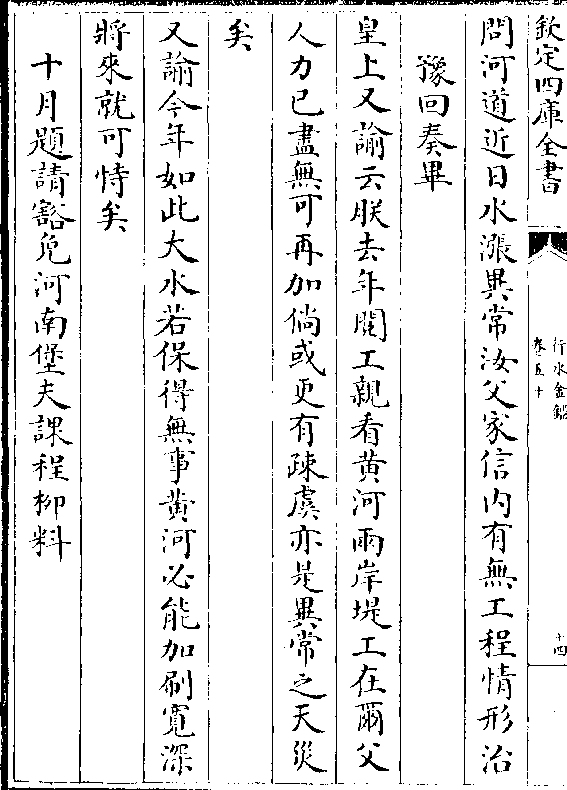 欽定四庫全書
行水金鑑
卷五十
十四
問河道近日水漲異常汝父家信内有無工程情形治
豫回奏畢
皇上又諭云朕去年閱工親看黄河兩岸堤工在爾父
人力已盡無可再加倘或更有疎虞亦是異常之天災
矣
又諭今年如此大水若保得無事黄河必能加刷寛深
將來就可恃矣
十月題請豁免河南堡夫課程柳料